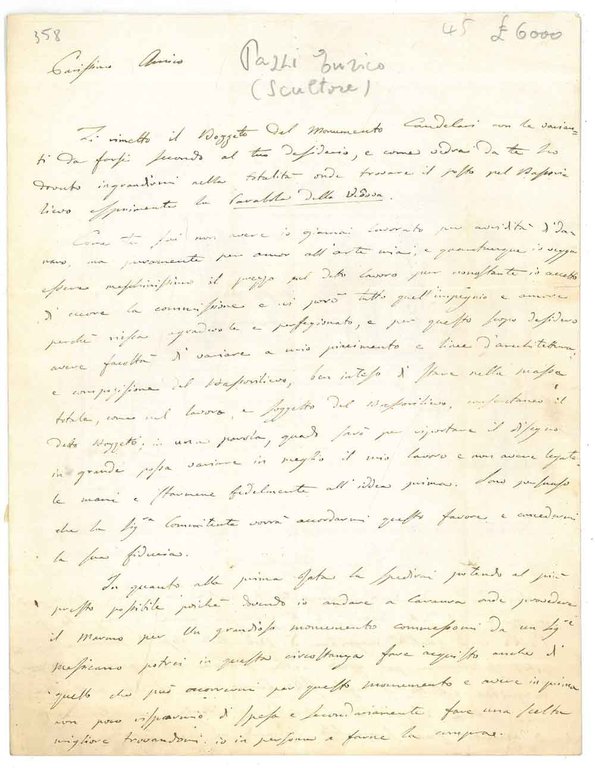 358
45 £ 6000
Carissimo Amico
Pazzi Enrico
(Scultore)
Ti rimetto il Bozzetto del Monumento Candelari con le varian-
ti da farsi secondo al tuo desiderio, e come vedrai da te ho
dovuto ingrandirmi nella totalità onde trovare il posto pel Bassori-
lievo esprimente la Parabola della Vedova.
Come tu sai non avere io giamai lavorato per avidità d'da-
naro, ma puramente per amor all'arte mia; e quantunque io vegga
essere meschinissimo il prezzo del detto lavoro per nonostante io accetto
di the commissione e vi porrò tutto quell'impegno e amore
perchè riesca gradevole e perfezionato, e per questo scopo desidero
avere facoltà di variare a mio piacimento e linee d'architettura
e composizione del Bassorilievo, ben inteso di stare nella massa
totale, come nel lavoro, e soggetto del Bassorilievo, il
detto Bozzetto; in una parola, quando sarò per riportare il disegno
in grande possa variare in meglio il mio lavoro e non avere legate
le mani e starmene fedelmente all'idea prima. Sono persuaso
che la Sig.ra Committente vorrà accordarmi questo favore, e concedermi
la sua fiducia.
In quanto alla prima rata la spedirai potendo al più
presto possibile poichè dovendo io andare a Carrara onde provvedere
il Marmo per un grandioso monumento commessomi da un Sig.e
Messicano potrei in questa circostanza fare acquisto anche di
quello che può occorrermi per questo monumento e avere in prima
non poco risparmio di spesa e secondariamente fare una scelta
migliore trovandomi io in persona a farne la compra.